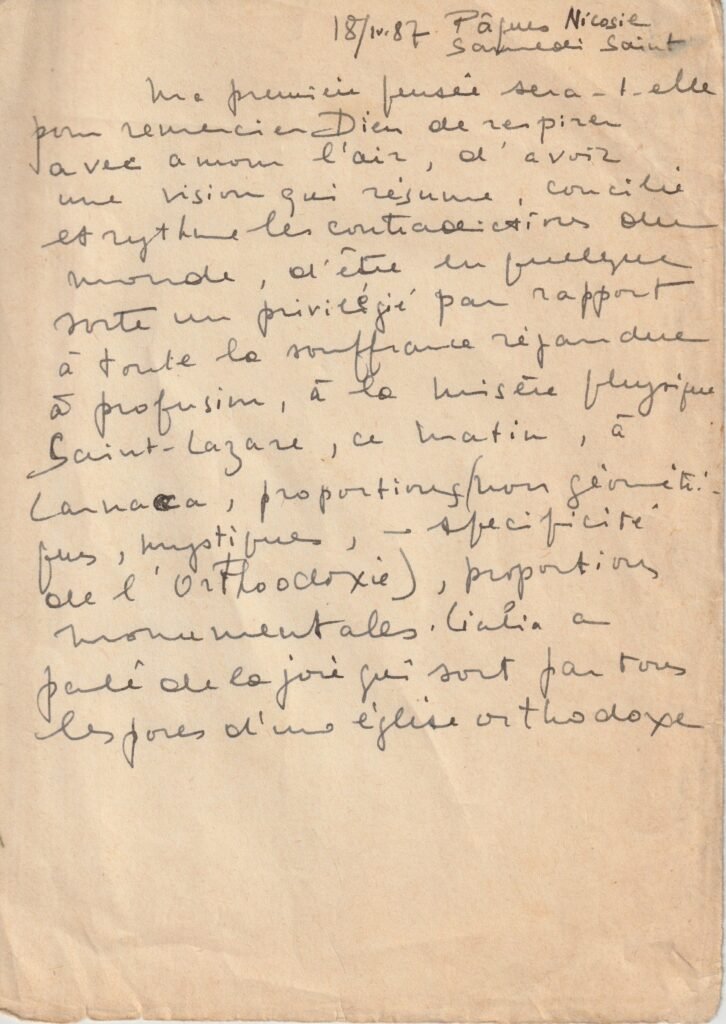 18/IV.87 Pâques Nicosie
Samedi Saint
Ma première pensée sera-t-elle
pour remercier Dieu de respirer
avec amour l'air, d'avoir
une vision qui résume, concilie
et rythme les contradictions du
monde, d'être en quelque
sorte un privilégié par rapport
à toute la souffrance répandue
à profusion, à la misère physique
Saint-Lazare, ce matin, à
Larnaca, proportions (non géométri-
ques, mystiques, – spécificité
de l'Orthodoxie), proportions
monumentales. a
parlé de la joie qui sort par tous
les pores d'une église orthodoxe